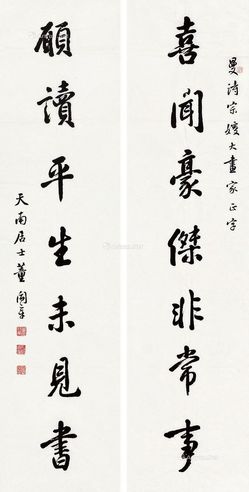 曼诗宗嫂大画家正字
喜聞豪傑非常事
願讀平生未見書
天南居士董開章